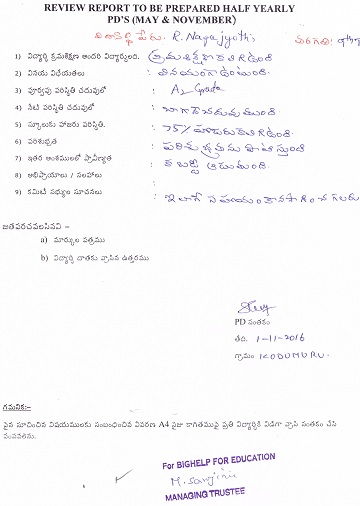 REVIEW REPORT TO BE PREPARED HALF YEARLY
PD'S (MAY & NOVEMBER)
విద్యార్థి పేరు. R. Nagajyothi తరగతి: 9th
1) విద్యార్థి క్రమశిక్షణ అందరి విద్యార్థులది. క్రమశిక్షణ కలిగి ఉంది
2) వినయ విధేయతలు : వినయంగా ఉంటుంది.
3) పూర్వపు పరిస్థితి చదువులో : A1 Grade
4) నేటి పరిస్థితి చదువులో : బాగా చదువుతుంది
5) స్కూలుకు హాజరు పరిస్థితి. : 75% హాజరు కలిగి ఉంది.
6) పరిశుభ్రత : పరిశుభ్రతను పాటిస్తుంది
7) ఇతర అంశములలో ప్రావీణ్యత : కబడ్డీ ఆడుతుంది.
8) అభిప్రాయాలు / సలహాలు :
9) కమిటి సభ్యుల సూచనలు : ఇలాగే సహాయం కొనసాగించగలరు
జతపరచవలసినవి –
a) మార్కుల పత్రము
b) విద్యార్థి దాతకు వ్రాసిన ఉత్తరము
PD సంతకం
తేది. 1-11-2016
గ్రామం KODUMURU.
గమనిక:-
పైన సూచించిన విషయములకు సంబంధించిన వివరణ A4 సైజు కాగితముపై ప్రతి విద్యార్థికి విడిగా వ్రాసి సంతకం చేసి
పంపవలెను.
For BIGHELP FOR EDUCATION
M. Sanjini
MANAGING TRUSTEE